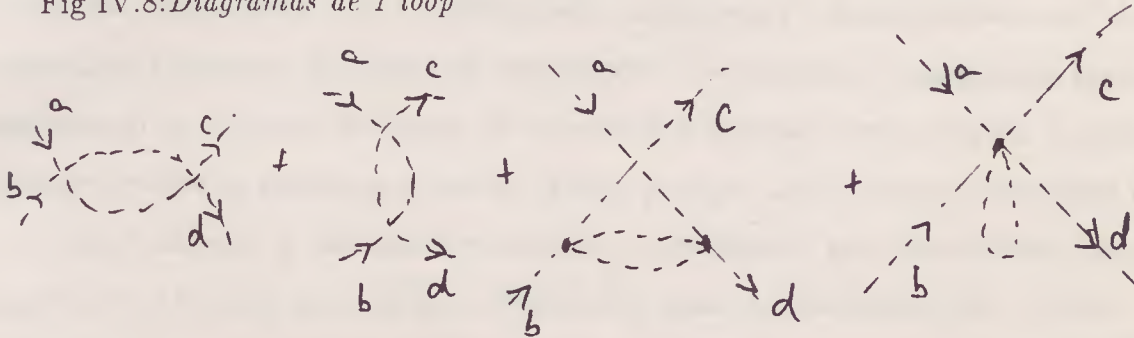 Fig IV.8:Diagramas de 1 loop
a b c d + a c b d + a c b d + a c b d